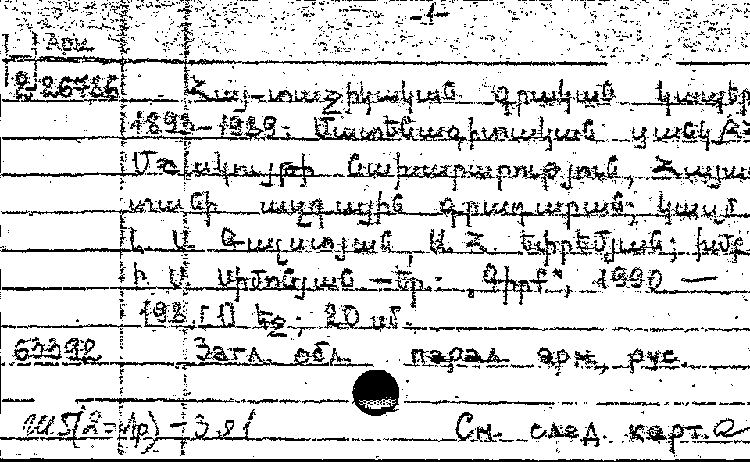 -1-
Арм
2-26786 Հայ-տաջիկական գրական կապեր
1893-1989: Մատենագիտական ցանկ
Մշակույթի նախարարություն, Հայաս
տանի ազգային գրադարան; կազմ.
Լ. Մ. Գալստյան, Ա. Հ. Եփրեմյան; խմբ
Ի. Մ. — Եր.: „Գիրք“, 1990 —
198 [1] էջ; 20 սմ.
63392 Загл. обл. парал. арм., рус.
Ш5(2=Ар) - 3я1 См. след. карт.